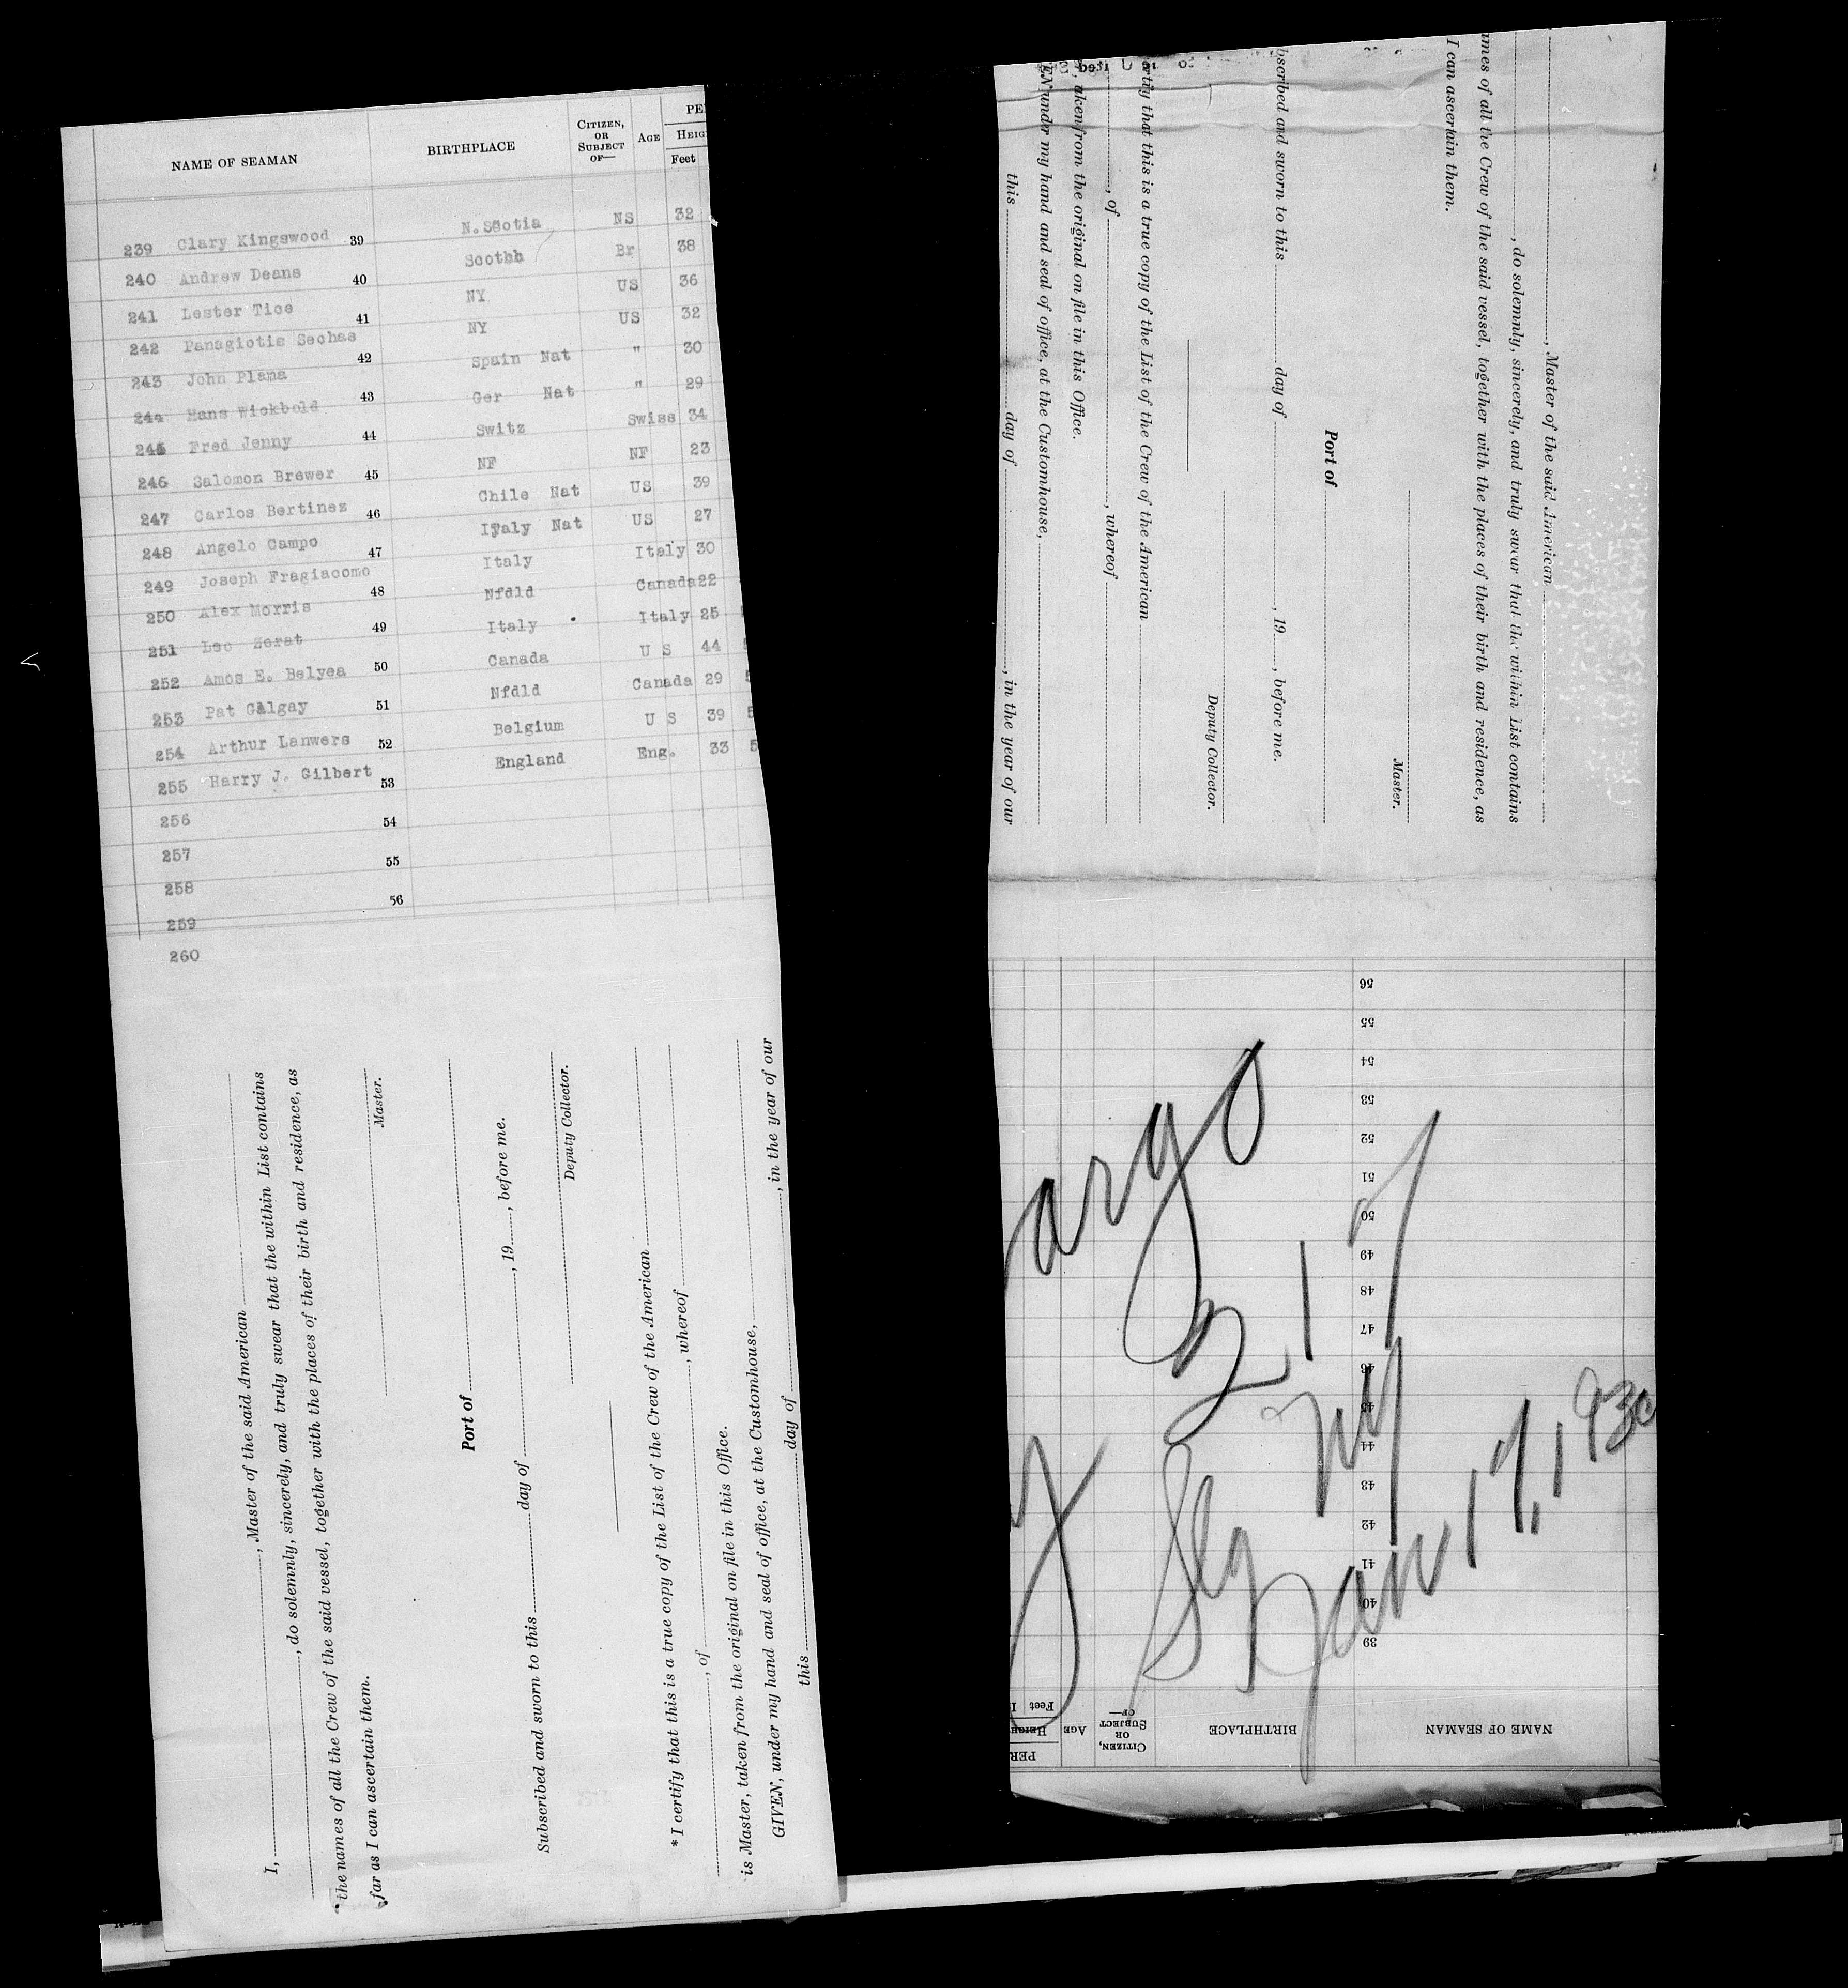 NAME OF SEAMAN BIRTHPLACE CITIZEN, OR SUBJECT OF— AGE HEIG Feet
239 Clary Kingswood 39 N.Scotia NS 32
240 Andrew Deans 40 Br 38
241 Lester Tice 41 NY US 36
242 Panagiotis Sechas NY US 32
243 John Plana 42 Spain Nat " 30
244 Hans Wickbold 43 Ger Nat " 29
Fred Jenny 44 Switz Swiss 34
246 Salomon Brewer 45 NF NF 23
247 Carlos Bertinez 46 Chile Nat US 39
248 Angelo Campo 47 Nat US 27
249 Joseph Fragiacomo Italy Italy 30
250 Alex Morris 48 Nfdld Canada 22
251 Leo Zerat 49 Italy Italy 25
252 Amos E. Belyea 50 Canada U S 44
253 Pat Galgay 51 Nfdld Canada 29 5
254 Arthur Lanwers 52 Belgium U S 39 5
255 Harry J. Gilbert 53 England Eng. 33 5
256 54
257 55
258 56
259
260
I, , Master of the said American
, do solemnly, sincerely, and truly swear that the within List contains
the names of all the Crew of the said vessel, together with the places of their birth and residence, as
far as I can ascertain them.
Master.
Port of
Subscribed and sworn to this day of , 19 , before me.
Deputy Collector.
*I certify that this is a true copy of the List of the Crew of the American
, of , whereof
is Master, taken from the original on file in this Office.
GIVEN, under my hand and seal of office, at the Customhouse,
this day of , in the year of our
, Master of the said American
, do solemnly, sincerely, and truly swear that the within List contains
ames of all the Crew of the said vessel, together with the places of their birth and residence, as
I can ascertain them.
Master.
Port of
bscribed and sworn to this day of , 19 , before me.
Deputy Collector.
rtify that this is a true copy of the List of the Crew of the American
, of , whereof
aken from the original on file in this Office.
EN under my hand and seal of office, at the Customhouse,
this day of , in the year of our
NAME OF SEAMAN BIRTHPLACE CITIZEN, OR SUBJECT OF— AGE PER HEIGH Feet
39
40
41
42
43
44
45
46
47
48
49
50
51
52
53
54
55
56
argo
NY
Jan 17, 1930